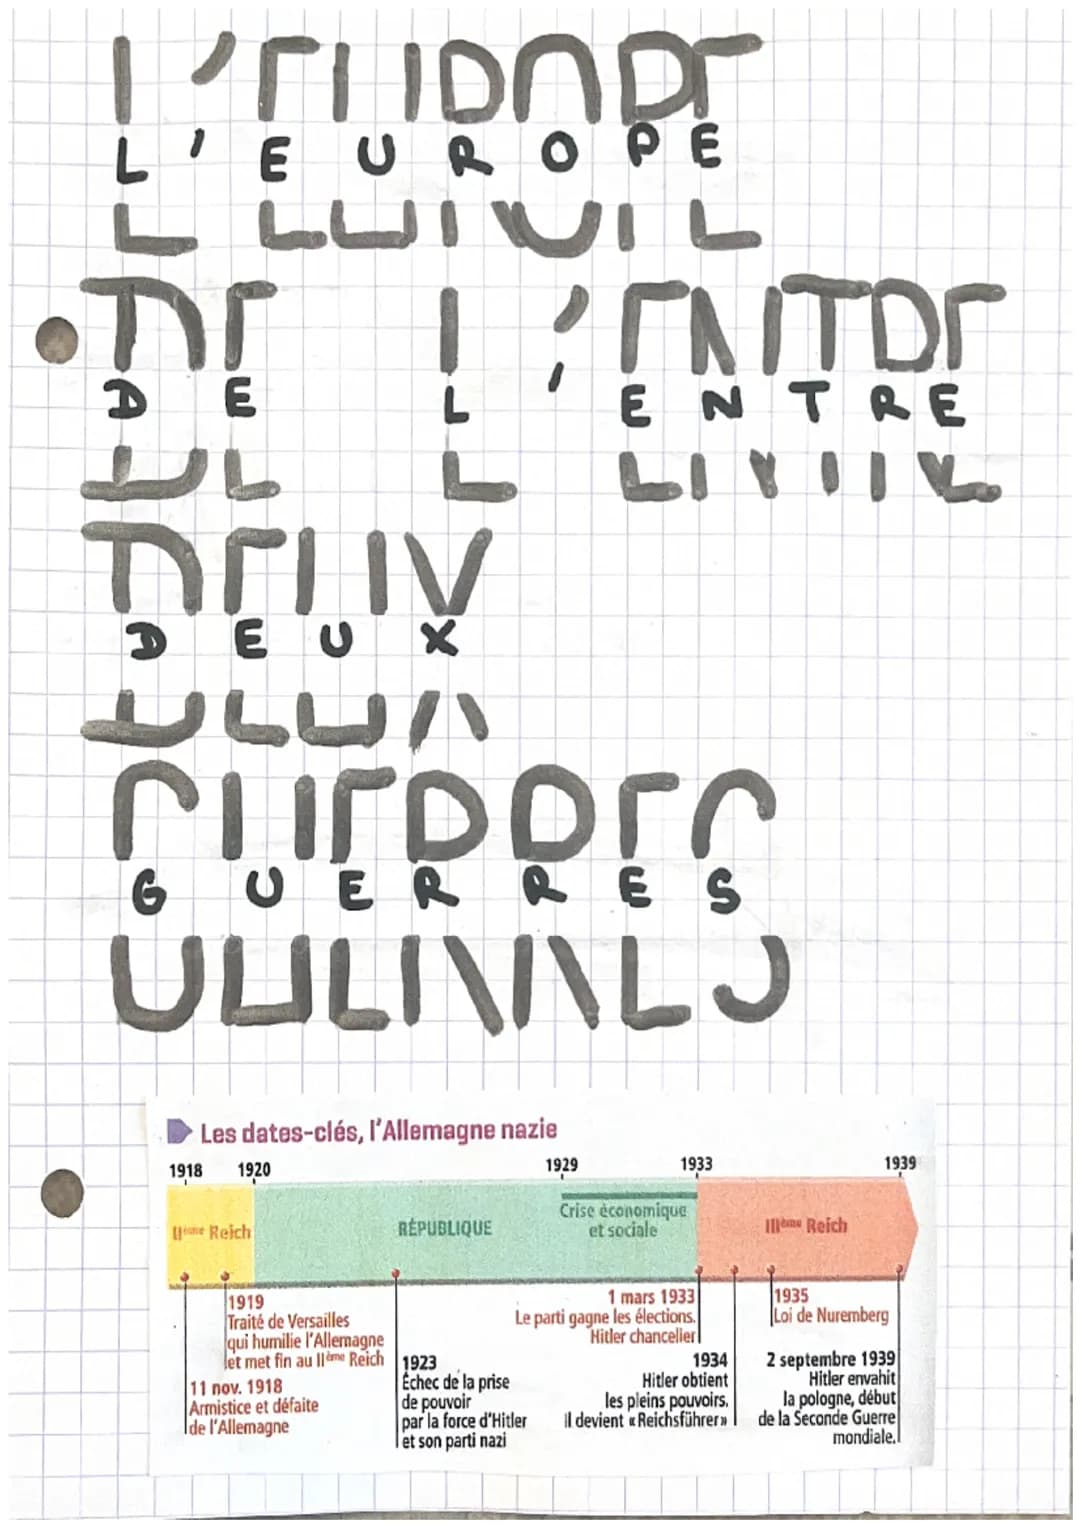 L'EUROPE
DE L'ENTRE
DEUX
GUERRES
Les dates-clés, l'Allemagne nazie
1918 1920 1929 1933 1939
IIème Reich RÉPUBLIQUE Crise économique et sociale IIIème Reich
1919
Traité de Versailles
qui humilie l'Allemagne
et met fin au IIème Reich
11 nov. 1918
Armistice et défaite
de l'Allemagne
1923
Échec de la prise
de pouvoir
par la force d'Hitler
et son parti nazi
1 mars 1933
Le parti gagne les élections.
Hitler chancelier
1934
Hitler obtient
les pleins pouvoirs,
il devient «Reichsführer»
1935
Loi de Nuremberg
2 septembre 1939
Hitler envahit
la pologne, début
de la Seconde Guerre
mondiale.